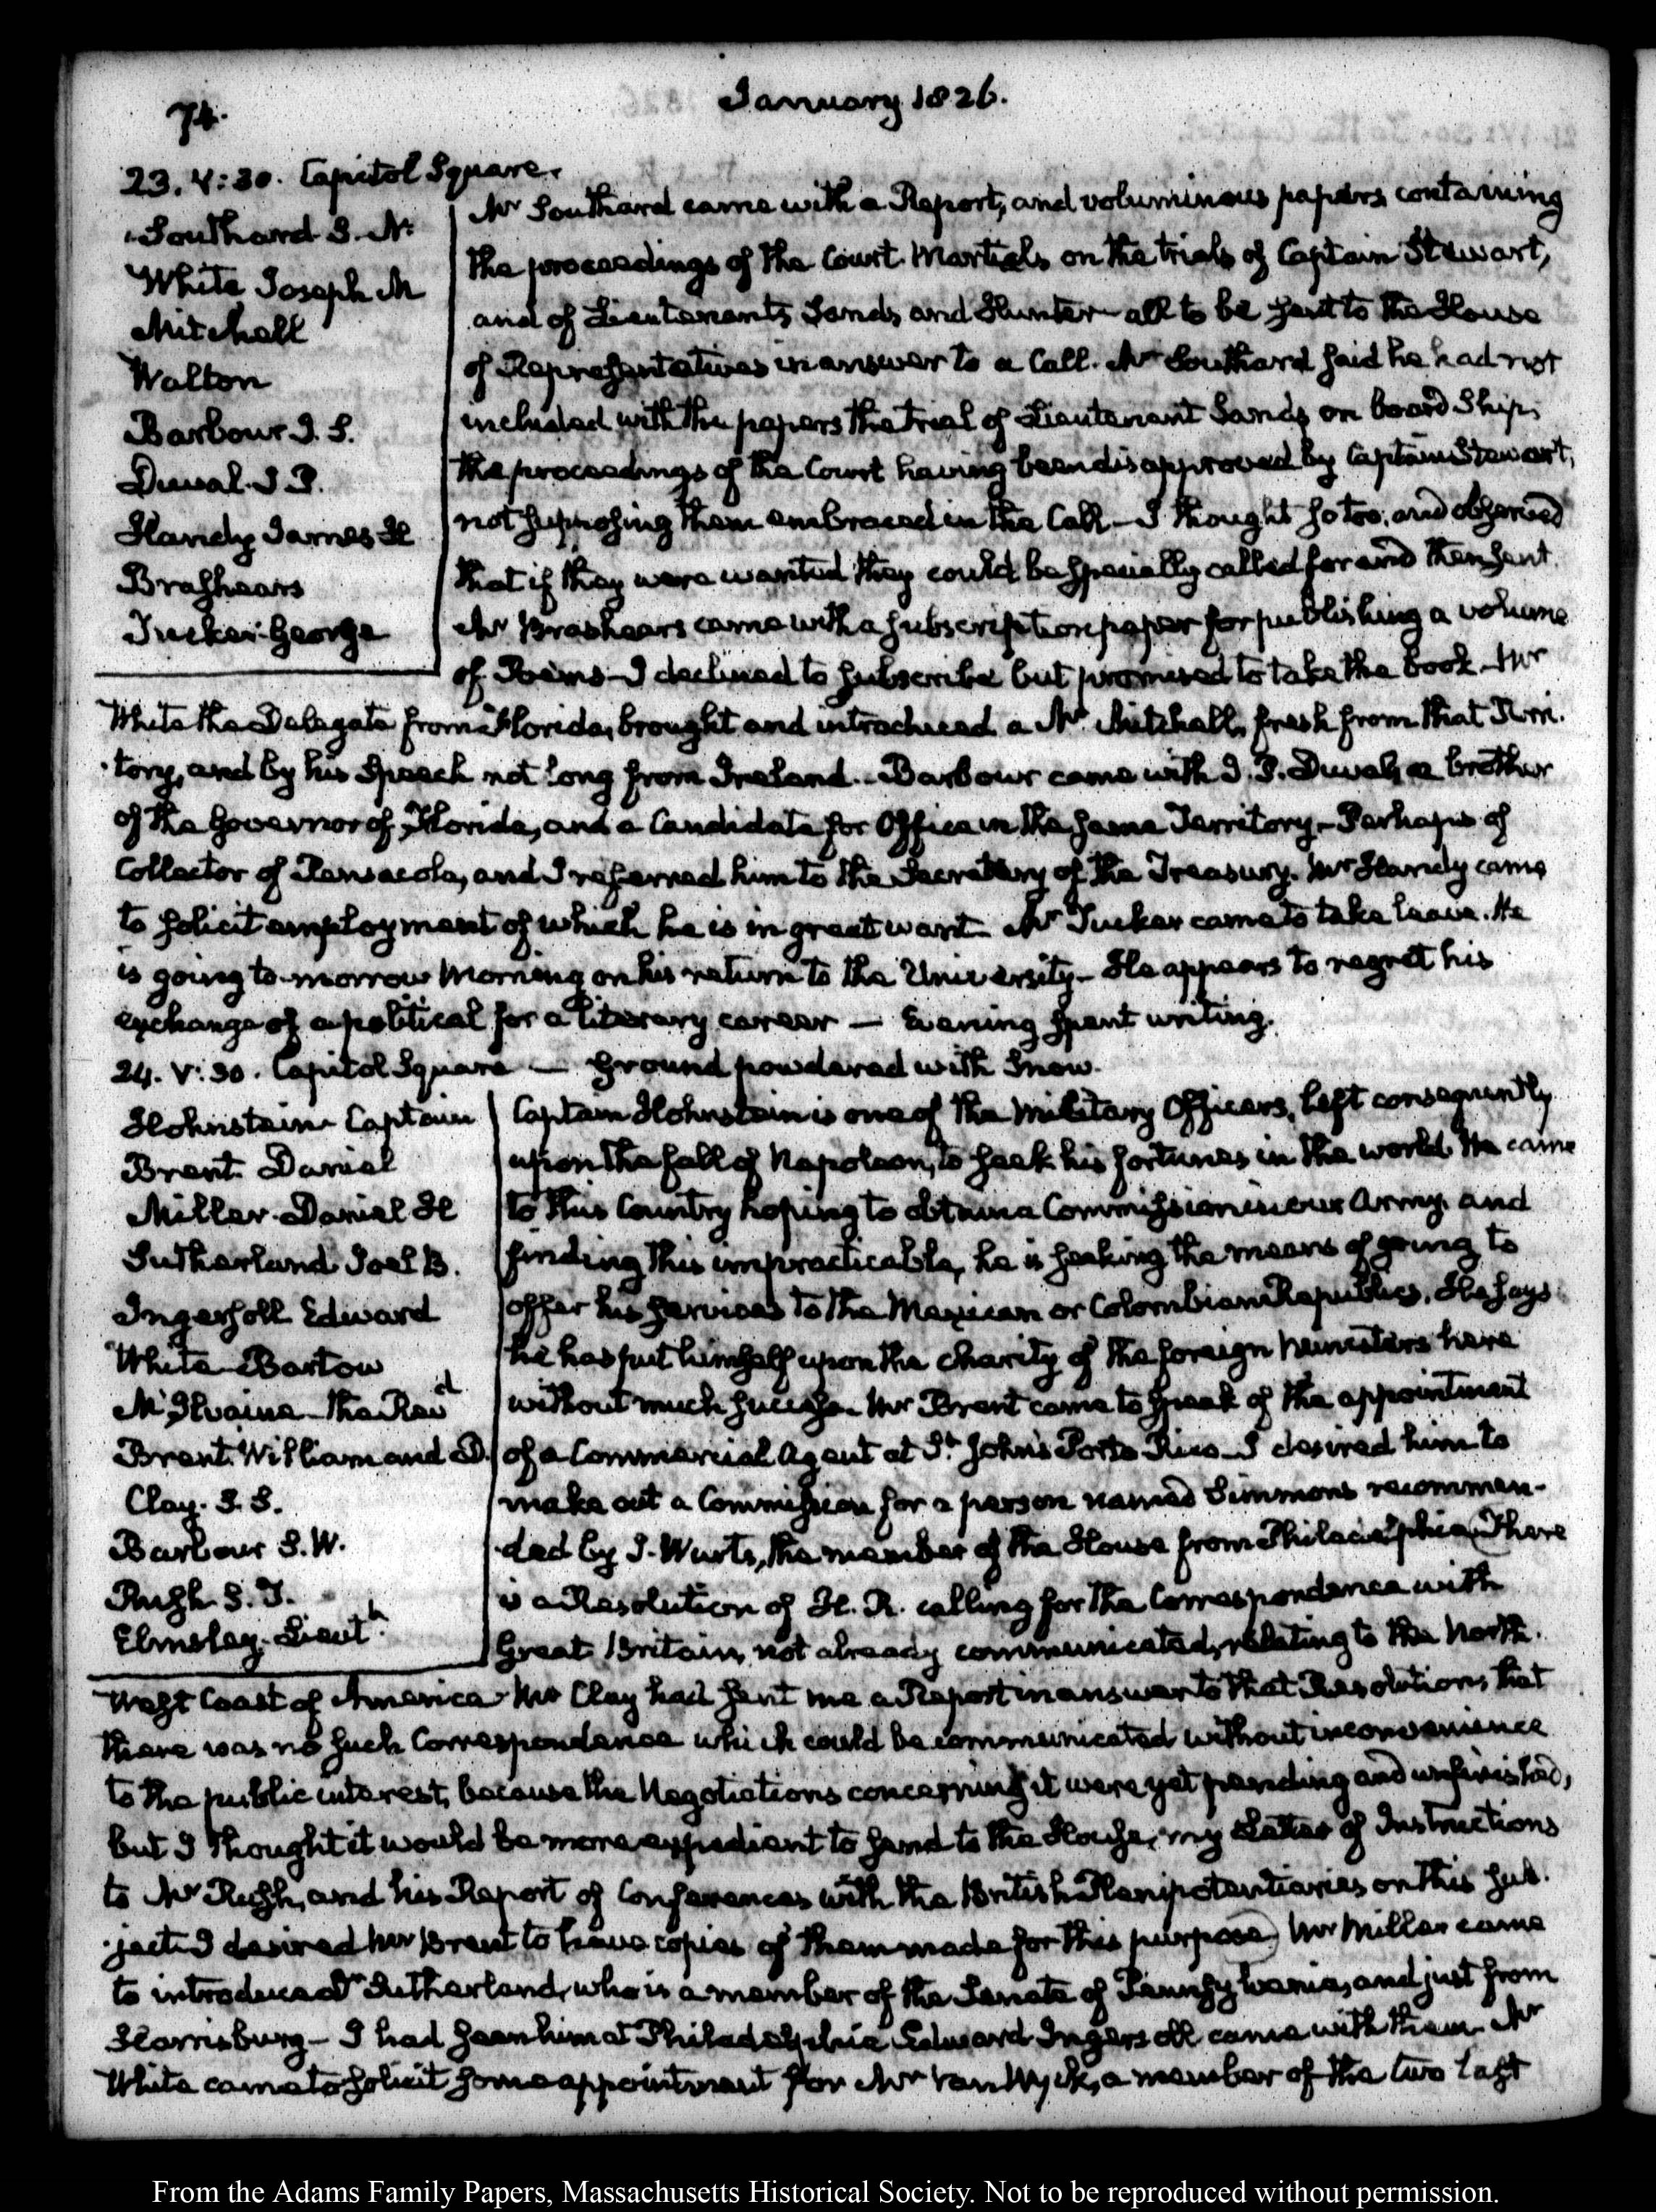 74.
January 1826.
23. V:30. Capitol Square.
Southard S. L.
White Joseph M
Mitchell
Walton
Barbour J. S.
Duval. J P.
Handy James H
Brashears
Tucker George
Mr Southard came with a Report, and voluminous papers containing
the proceedings of the Court Martials on the trials of Captain Stewart,
and of Lieutenants Sands and Hunter all to be sent to the House
of Representatives in answer to a Call. Mr Southard said he had not
included with the papers the trial of Lieutenant Sands on board Ship;
the proceedings of the Court having been disapproved by Captain Stewart,
not supposing them embraced in the Call — I thought so too, and observed
that if they were wanted they could be specially called for and then sent.
Mr Brashears came with a subscription paper for publishing a volume
of Poems — I declined to subscribe but promised to take the book — Mr
White the Delegate from Florida, brought and introduced a Mr Mitchell, fresh from that Terri-
tory, and by his Speech not long from Ireland. — Barbour came with J. P. Duval, a brother
of the Governor of Florida, and a Candidate for Office in the same Territory — Perhaps of
Collector of Pensacola, and I referred him to the Secretary of the Treasury. Mr Handy came
to solicit employment of which he is in great want — Mr Tucker came to take leave. He
is going to-morrow Morning on his return to the University — He appears to regret his
exchange of a political for a literary career — Evening spent writing.
24. V:30. Capitol Square — Ground powdered with Snow.
Hohnstein Captain
Brent Daniel
Miller Daniel H
Sutherland Joel B.
Ingersoll Edward
White Bartow
McIlvaine the Revd
Brent. William and D.
Clay. S. S.
Barbour S. W.
Rush S. T.
Elmsley. Lieutt
Captain Hohnstein is one of the Military Officers, left consequently
upon the fall of Napoleon, to seek his fortunes in the world. He came
to this Country hoping to obtain a Commission in our Army, and
finding this impracticable, he is seeking the means of going to
offer his services to the Mexican or Colombian Republics. He says
he has put himself upon the charity of the foreign Ministers here
without much success. Mr Brent came to speak of the appointment
of a Commercial Agent at St. John's Porto Rico — I desired him to
make out a Commission for a person named Simmons recommen-
ded by J. Wurts, the member of the House from Philadelphia. There
is a Resolution of H. R. calling for the Correspondence with
Great Britain, not already communicated, relating to the North-
West Coast of America — Mr Clay had sent me a Report in answer to that Resolution, that
there was no such Correspondence which could be communicated without inconvenience
to the public interest, because the Negotiations concerning it were yet pending and unfinished,
but I thought it would be more expedient to send to the House, my Letter of Instructions
to Mr Rush, and his Report of Conferences with the British Plenipotentiaries on this sub-
ject. I desired Mr Brent to have copies of them made for this purpose. Mr Miller came
to introduce a Dr Sutherland, who is a member of the Senate of Pennsylvania, and just from
Harrisburg — I had seen him at Philadelphia Edward Ingersoll came with them. Mr
White came to solicit some appointment for Mr Van Wyck, a member of the two last
From the Adams Family Papers, Massachusetts Historical Society. Not to be reproduced without permission.